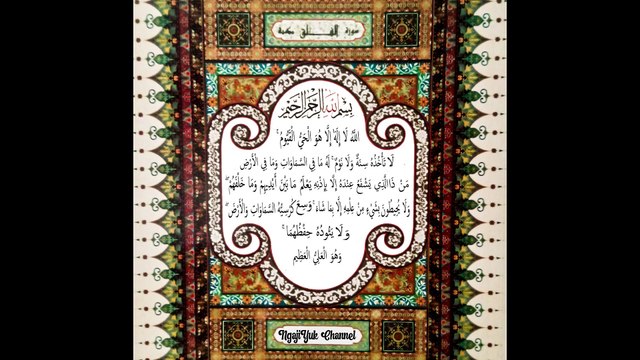 سورة الفلق مكية
بِسْمِ اللَّهِ الرَّحْمَٰنِ الرَّحِيمِ
اللَّهُ لَا إِلَٰهَ إِلَّا هُوَ الْحَيُّ الْقَيُّومُ ۚ
لَا تَأْخُذُهُ سِنَةٌ وَلَا نَوْمٌ ۚ لَهُ مَا فِي السَّمَاوَاتِ وَمَا فِي الْأَرْضِ
مَنْ ذَا الَّذِي يَشْفَعُ عِنْدَهُ إِلَّا بِإِذْنِهِ يَعْلَمُ مَا بَيْنَ أَيْدِيهِمْ وَمَا خَلْفَهُمْ ۖ
وَلَا يُحِيطُونَ بِشَيْءٍ مِنْ عِلْمِهِ إِلَّا بِمَا شَاءَ ۚ وَسِعَ كُرْسِيُّهُ السَّمَاوَاتِ وَالْأَرْضَ ۖ
وَلَا يَئُودُهُ حِفْظُهُمَا ۚ
وَهُوَ الْعَلِيُّ الْعَظِيمُ
NgajiYuk Channel